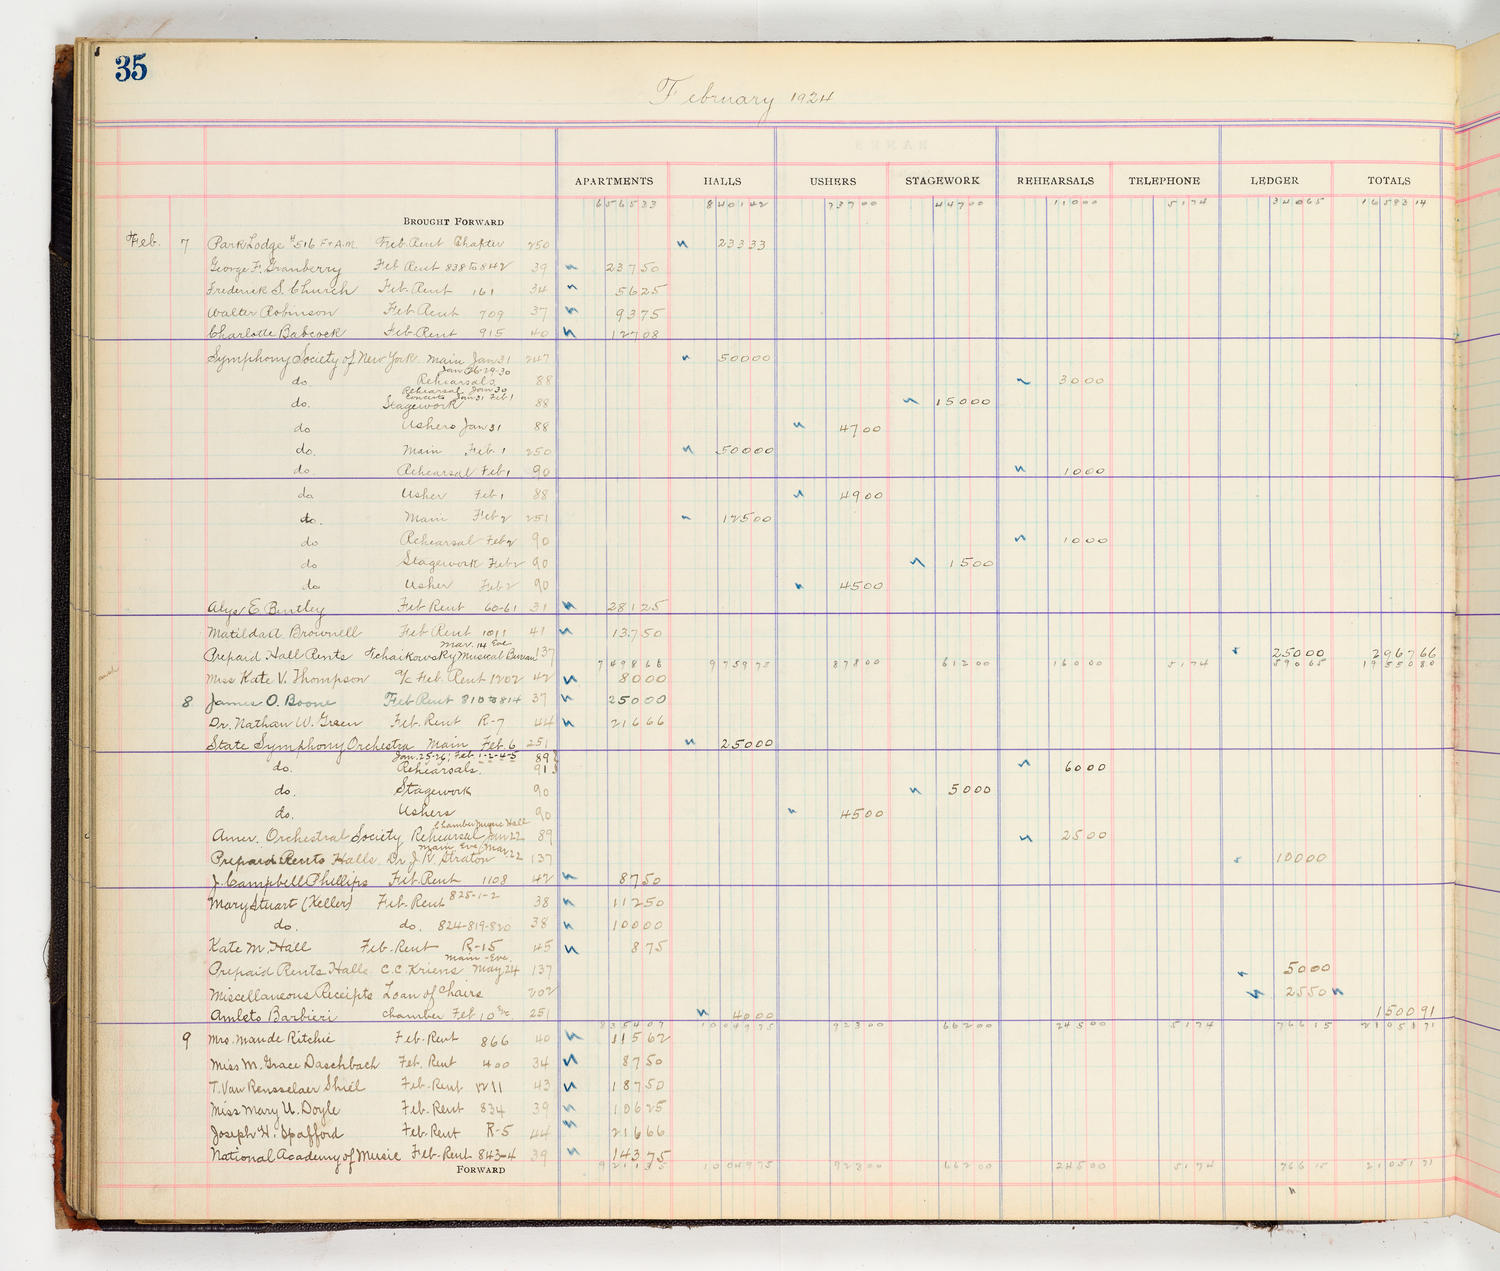 35
February 1924
APARTMENTS HALLS USHERS STAGEWORK REHEARSALS TELEPHONE LEDGER TOTALS
BROUGHT FORWARD 656533 840142 73700 44700 11000 5174 34065 1658314
Feb. 7 Park Lodge #516 F+A.M. Feb. Rent Chapter 250 23333
George F. Granberry Feb Rent 838 to 842 39 23750
Frederick S. Church Feb. Rent 161 34 5625
Walter Robinson Feb Rent 709 37 9375
Charlotte Babcock Feb. Rent 915 40 12708
Symphony Society of New York Main Jan 31 247 50000
Jan 26-29-30
do. Rehearsals 88 3000
Rehearsal Jan 30
Concerts Jan 31 Feb 1
do. Stagework 88 15000
do Ushers Jan 31 88 4700
do. Main Feb 1 250 50000
do. Rehearsal Feb 1 90 1000
do Usher Feb 1 88 4900
do. Main Feb 2 251 12500
do Rehearsal Feb 2 90 1000
do Stagework Feb 2 90 1500
do Usher Feb 2 90 4500
Alys E. Bentley Feb Rent 60-61 31 28125
Matilda A. Brownell Feb Rent 1011 41 13750
Mar. 14 Eve
Prepaid Hall Rents Tchaikowsky Musical Bureau 137 25000 296766
749868 975975 87800 61200 16000 5174 59065 1955080
Miss Kate V. Thompson a/c Feb. Rent 1202 42 8000
8 James O. Boone Feb Rent 810 to 814 37 25000
Dr. Nathan W. Green Feb. Rent R-7 44 21666
State Symphony Orchestra Main Feb. 6 251 25000
Jan. 25-26, Feb. 1-2-4-5 89
do. Rehearsals. 91 6000
do. Stagework 90 5000
do. Ushers 90 4500
Chamber Music Hall
Amer. Orchestral Society Rehearsal Jan 22 89 2500
Main Eve Mar. 22
Prepaid Rents Halls Dr J. R. Straton 137 10000
J. Campbell Phillips Feb. Rent 1108 42 8750
Mary Stuart (Keller) Feb. Rent 825-1-2 38 11250
do. do. 824-819-820 38 10000
Kate M. Hall Feb. Rent R-15 45 875
Main - Eve.
Prepaid Rents Halls C.C. Kriens May 24 137 5000
Miscellaneous Receipts Loan of Chairs 202 2550
Amleto Barbieri Chamber Feb 10 Eve 251 4000 150091
835407 1004975 92300 66200 24500 5174 76615 2105171
9 Mrs. Maude Ritchie Feb. Rent 866 40 11562
Miss M. Grace Daschbach Feb. Rent 400 34 8750
T. Van Rensselaer Shiel Feb. Rent 1211 43 18750
Miss Mary U. Doyle Feb. Rent 834 39 10625
Joseph H. Spafford Feb. Rent R-5 44 21666
National Academy of Music Feb. Rent 843-4 39 14375
FORWARD 921135 1004975 92300 66200 24500 5174 76615 2105171